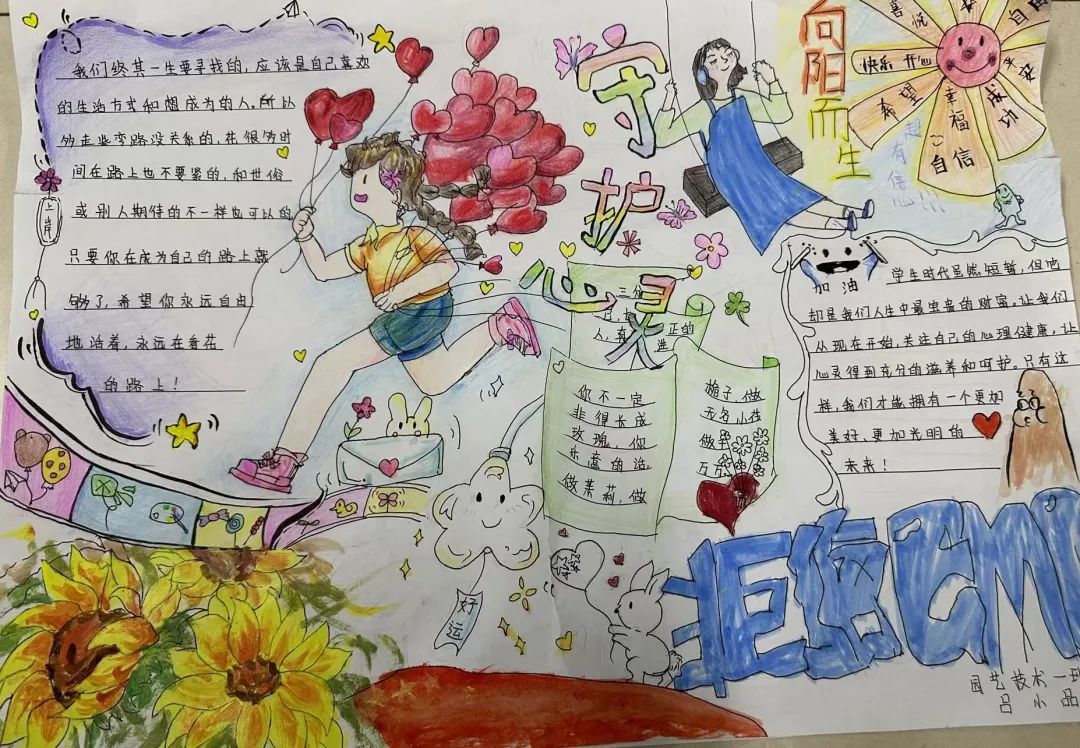 我们终其一生要寻找的,应该是自己喜欢
的生活方式和想成为的人,所以
多走些弯路没关系的,花很多时
间在路上也不要紧的,和世俗
或别人期待的不一样也可以的
只要你在成为自己的路上就
够了,希望你永远自由
地活着,永远在看花
的路上!
上岸
守护心灵
向阳而生
喜悦
自由
快乐 开心
美好
希望
幸福
成功
自信
超有信心
加油
学生时代虽然短暂,但它
却是我们人生中最宝贵的财富,让我们
从现在开始,关注自己的心理健康,让
心灵得到充分的滋养和呵护。只有这
样,我们才能拥有一个更加
美好、更加光明的
未来!
你不一定
非得长成
玫瑰,你
乐意的话,
做茉莉,做
栀子,做
无名小花
做
好运
拒绝emo
园艺技术一班
吕小品